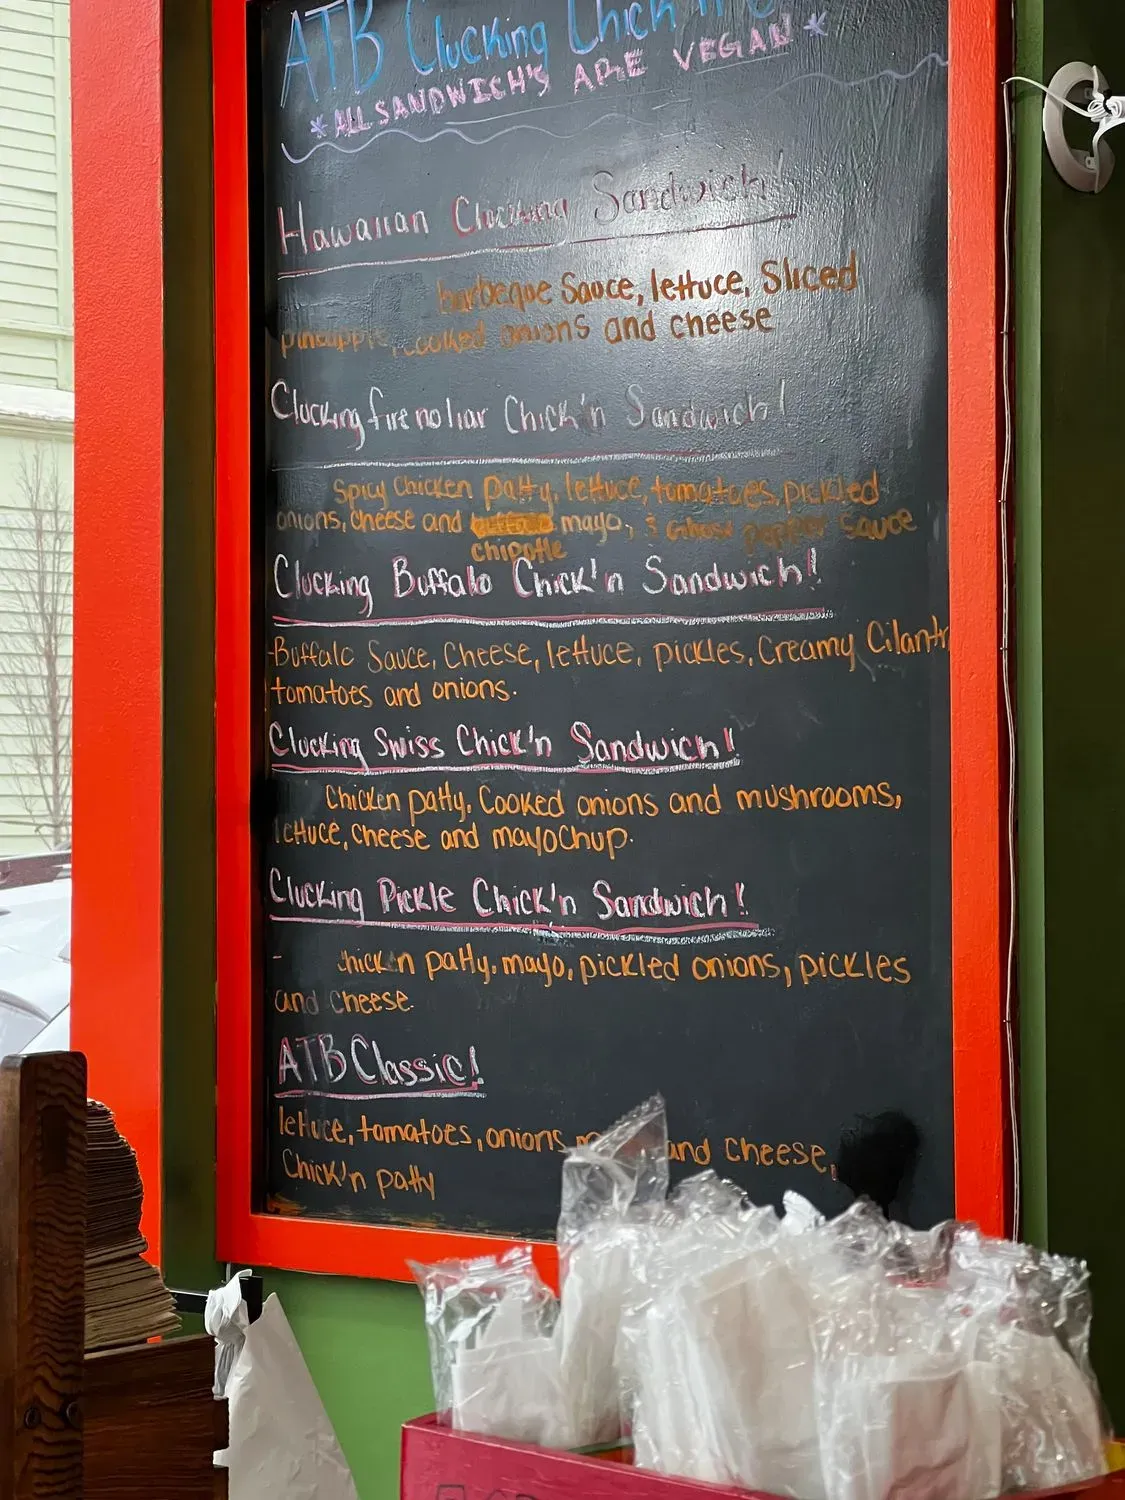 ATB Clucking Chick'n
*ALL SANDWICH'S ARE VEGAN*
Hawaiian Clucking Sandwich!
barbeque Sauce, lettuce, Sliced
pineapple, cooked onions and cheese
Clucking fire no liar Chick'n Sandwich!
Spicy Chicken patty, lettuce, tomatoes, pickled
onions, cheese and mayo, & Ghost pepper Sauce
chipotle
Clucking Buffalo Chick'n Sandwich!
-Buffalo Sauce, Cheese, lettuce, pickles, Creamy Cilantr
tomatoes and onions.
Clucking Swiss Chick'n Sandwich!
Chicken patty, Cooked onions and mushrooms,
lettuce, cheese and mayochup.
Clucking Pickle Chick'n Sandwich!
- chick n patty, mayo, pickled onions, pickles
and cheese.
ATB Classic!
lettuce, tomatoes, onions and cheese,
Chick'n patty